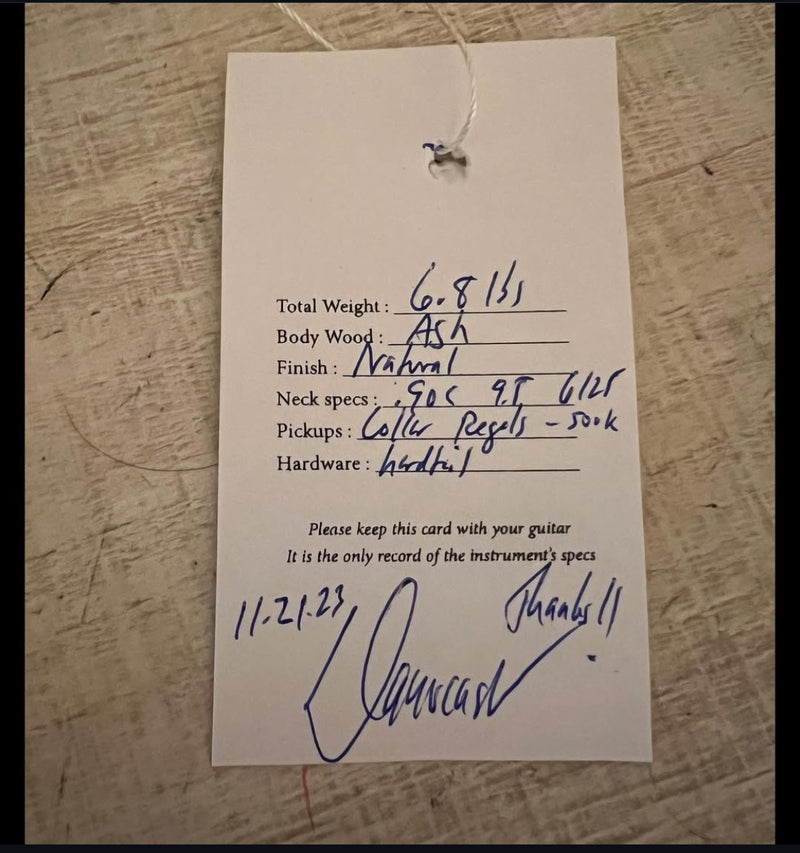 Total Weight : 6.8 lbs
Body Wood : Ash
Finish : Natural
Neck specs : .90C 9.5 6125
Pickups : Collar Regals - 500k
Hardware : hardtail
Please keep this card with your guitar
It is the only record of the instrument's specs
11.21.23
Thanks!!